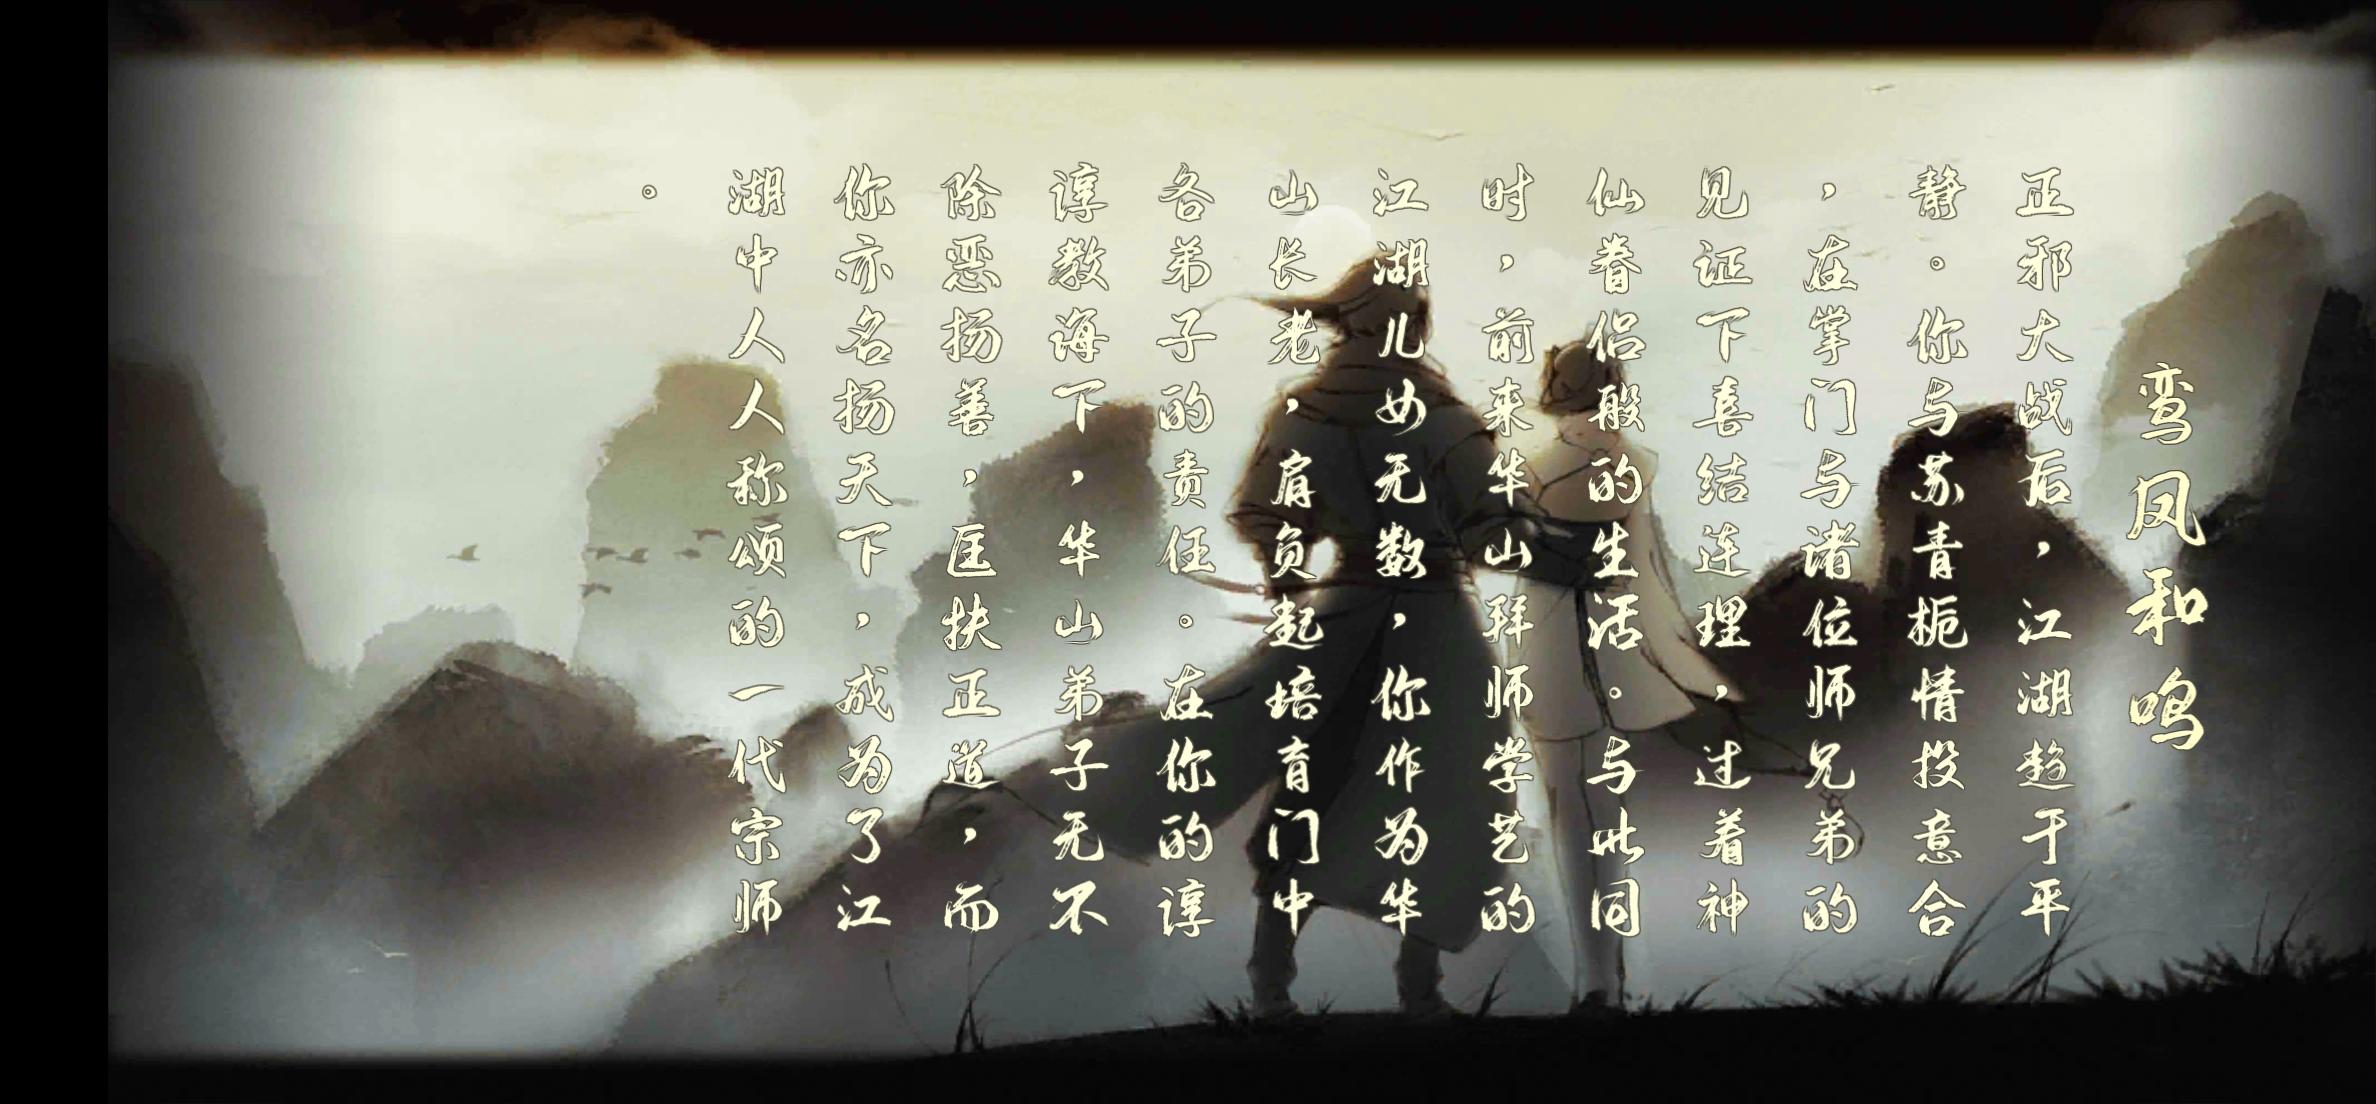 鸾凤和鸣
正邪大战后，江湖趋于平
静。你与苏青栀情投意合
，在掌门与诸位师兄弟的
见证下喜结连理，过着神
仙眷侣般的生活。与此同
时，前来华山拜师学艺的
江湖儿女无数，你作为华
山长老，肩负起培育门中
各弟子的责任。在你的谆
谆教诲下，华山弟子无不
除恶扬善，匡扶正道，而
你亦名扬天下，成为了江
湖中人人称颂的一代宗师
。